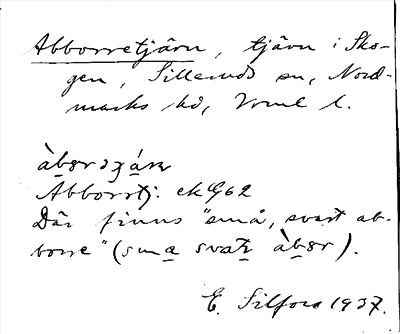 Abborretjärn, tjärn i Sko-
gen, Silleruds sn, Nord-
marks hd, Vrml l.
Abborrtj: ek G62
Där finns "små, svart ab-
borre" (sma svatr àbør).
E. Silfors 1937.